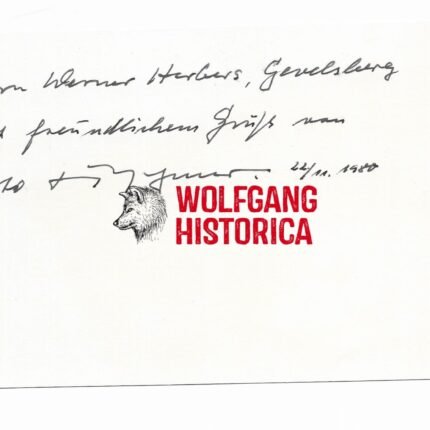 rn Werner Herbers, Gevelsberg
freundlichem Gruß von
22/11. 1980
WOLFGANG
HISTORICA